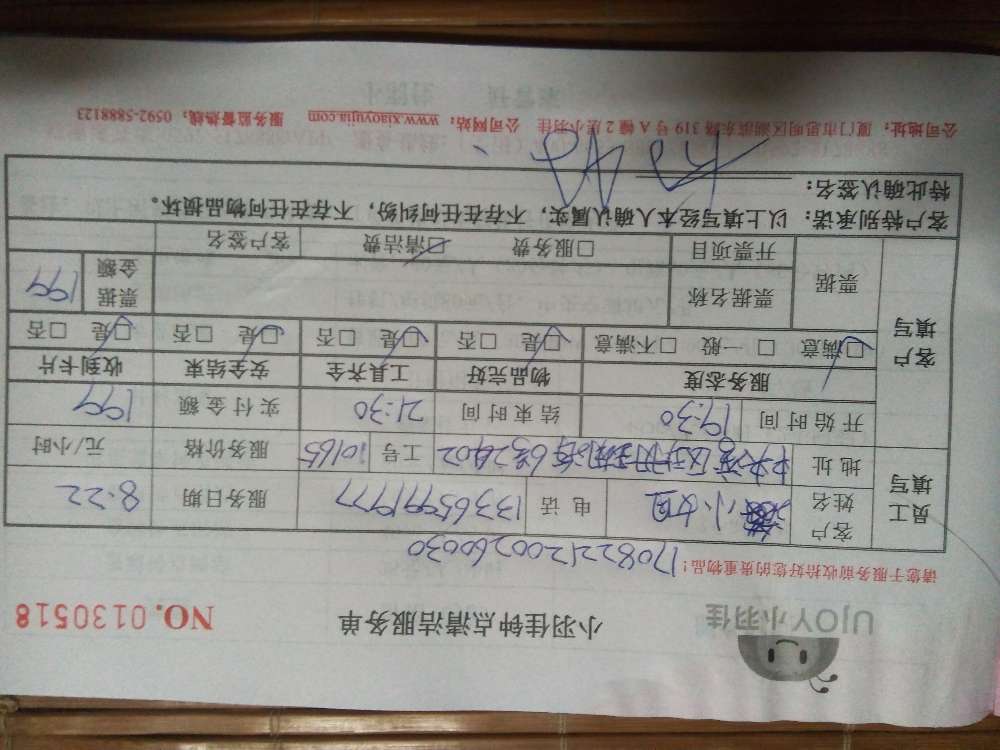 UJOY小羽佳
小羽佳钟点清洁服务单
NO. 0130518
请您于服务前收拾好您的贵重物品！
1708221200260030
员工填写
客户姓名 小姐 电话 13365991977 服务日期 8.22
地址 6 2402 工号 10165 服务价格 元/小时
开始时间 19:30 结束时间 21:30 实付金额 199
客户填写
服务态度 物品完好 工具齐全 安全结束 收到卡片
☑满意 □一般 □不满意 ☑是 □否 ☑是 □否 ☑是 □否 ☑是 □否
票据 票据名称 票据金额 199
开票项目 □服务费 ☑清洁费 客户签名
客户特别承诺：以上填写经本人确认属实，不存在任何纠纷，不存在任何物品损坏。
特此确认签名：
公司地址：厦门市思明区湖滨东路319号A幢2层小羽佳 公司网站：www.xiaoyujia.com 服务监督热线：0592-5888123